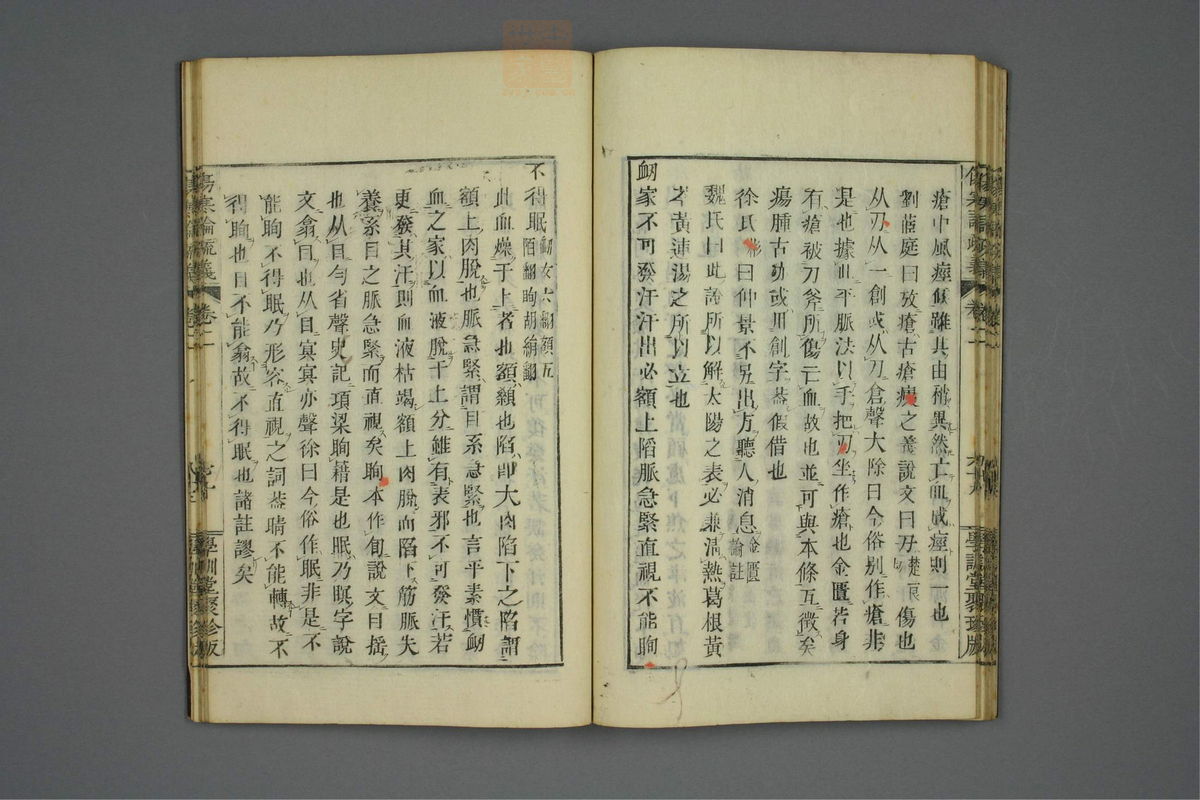 瘡中風痙候雖其由稍異然亡血成痙則一也
劉茝庭曰攷瘡古瘡瘍之義說文曰刃楚良傷也
从刃从一創或从刀倉聲大徐曰今俗別作瘡非
是也據此平脈法以手把刃坐作瘡也金匱若身
有瘡被刀斧所傷亡血故也並可與本條互徵矣
瘍腫古亦或用創字蓋假借也
徐氏曰仲景不另出方聽人消息金匱論註
魏氏曰此證所以解太陽之表必兼清熱葛根黃
芩黃連湯之所以立也
衄家不可發汗汗出必額上陷脈急緊直視不能眴
不得眠衄女六翻額五陌翻眴胡絹翻
此血燥于上者也額顙也陷卽大肉陷下之陷謂
額上肉脫也脈急緊謂目系急緊也言平素慣衄
血之家以血液脫于上分雖有表邪不可發汗若
更發其汗則血液枯竭額上肉脫而陷下筋脈失
養系目之脈急緊而直視矣眴本作旬說文曰搖
也从目勻省聲史記項梁眴籍是也眠乃瞑字說
文翕目也从目冥冥亦聲徐曰今俗作眠非是不
能眴不得眠乃形容直視之詞蓋睛不能轉故不
得眴也目不能翕故不得眠也諸註謬矣
傷寒論疏義
卷二
學訓堂聚珍版